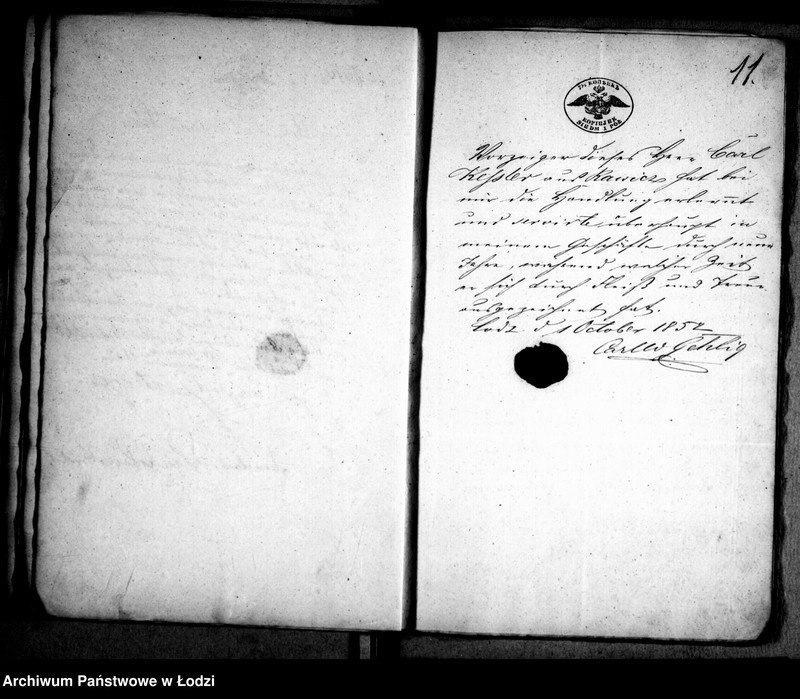 11.
7½ КОПѢЕКЪ
KOPIEJEK
SIEDM I PÓŁ
Vorzeiger dieses Herr Carl
Kessler aus Rawicz hat bei
mir die Handlung erlernt
und servirte überhaupt in
meinem Geschäfte durch neun
Jahre, während welcher Zeit
er sich durch Fleiß und Treue
ausgezeichnet hat.
Lodz d 1 October 1852
Carl Gehlig
Archiwum Państwowe w Łodzi